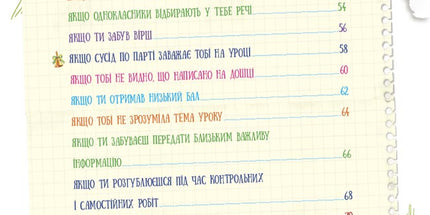 ЯКЩО ОДНОКЛАСНИКИ ВІДБИРАЮТЬ У ТЕБЕ РЕЧІ 54
ЯКЩО ТИ ЗАБУВ ВІРШ 56
ЯКЩО СУСІД ПО ПАРТІ ЗАВАЖАЄ ТОБІ НА УРОЦІ 58
ЯКЩО ТОБІ НЕ ВИДНО, ЩО НАПИСАНО НА ДОШЦІ 60
ЯКЩО ТИ ОТРИМАВ НИЗЬКИЙ БАЛ 62
ЯКЩО ТОБІ НЕ ЗРОЗУМІЛА ТЕМА УРОКУ 64
ЯКЩО ТИ ЗАБУВАЄШ ПЕРЕДАТИ БЛИЗЬКИМ ВАЖЛИВУ
ІНФОРМАЦІЮ 66
ЯКЩО ТИ РОЗГУБЛЮЄШСЯ ПІД ЧАС КОНТРОЛЬНИХ
І САМОСТІЙНИХ РОБІТ 68